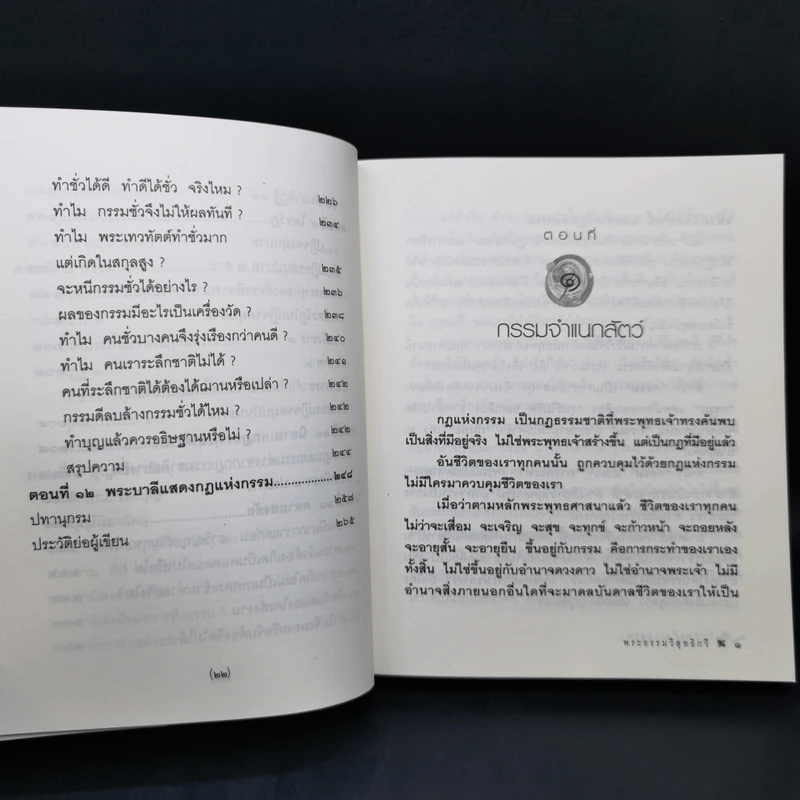 ทำชั่วได้ดี ทำดีได้ชั่ว จริงไหม ? ๒๒๖
ทำไม กรรมชั่วจึงไม่ให้ผลทันที ? ๒๓๔
ทำไม พระเทวทัตต์ทำชั่วมาก
แต่เกิดในสกุลสูง ? ๒๓๕
จะหนีกรรมชั่วได้อย่างไร ? ๒๓๖
ผลของกรรมมีอะไรเป็นเครื่องวัด ? ๒๓๘
ทำไม คนชั่วบางคนจึงรุ่งเรืองกว่าคนดี ? ๒๔๐
ทำไม คนเราระลึกชาติไม่ได้ ? ๒๔๑
คนที่ระลึกชาติได้ต้องได้ฌานหรือเปล่า ? ๒๔๒
กรรมดีลบล้างกรรมชั่วได้ไหม ? ๒๔๒
ทำบุญแล้วควรอธิษฐานหรือไม่ ? ๒๔๒
สรุปความ ๒๔๔
ตอนที่ ๑๒ พระบาลีแสดงกฎแห่งกรรม.................. ๒๔๘
ปทานุกรม ๒๕๗
ประวัติย่อผู้เขียน ๒๖๕
(๒๒)
ตอนที่
๑
กรรมจำแนกสัตว์
กฎแห่งกรรม เป็นกฎธรรมชาติที่พระพุทธเจ้าทรงค้นพบ
เป็นสิ่งที่มีอยู่จริง ไม่ใช่พระพุทธเจ้าสร้างขึ้น แต่เป็นกฎที่มีอยู่แล้ว
อันชีวิตของเราทุกคนนั้น ถูกควบคุมไว้ด้วยกฎแห่งกรรม
ไม่มีใครมาควบคุมชีวิตของเรา
เมื่อว่าตามหลักพระพุทธศาสนาแล้ว ชีวิตของเราทุกคน
ไม่ว่าจะเสื่อม จะเจริญ จะสุข จะทุกข์ จะก้าวหน้า จะถอยหลัง
จะอายุสั้น จะอายุยืน ขึ้นอยู่กับกรรม คือการกระทำของเราเอง
ทั้งสิ้น ไม่ใช่ขึ้นอยู่กับอำนาจดวงดาว ไม่ใช่อำนาจพระเจ้า ไม่มี
อำนาจสิ่งภายนอกอื่นใดที่จะมาดลบันดาลชีวิตของเราให้เป็น
พระธรรมวิสุทธิกวี ๑